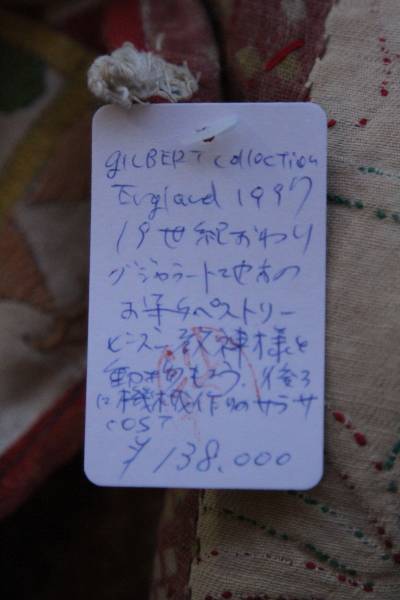 GILBERT collection
England 1997
19世紀おわり
グジャラート地方の
ペストリー
神様と
動物もよう。後ろ
に機械作りのサラサ
COST
¥138.000